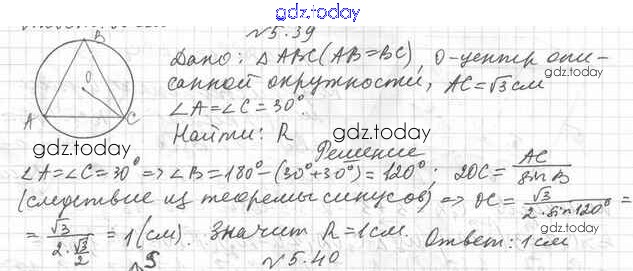 gdz.today
№5.39
B
O
A
C
Дано: △ABC (AB=BC), O-центр опи-
санной окружности, AC=√3 см
gdz.today
∠A=∠C=30°.
Найти: R
gdz.today
gdz.today
Решение
∠A=∠C=30° => ∠B=180°-(30°+30°)=120°; 2OC = AC/sin B
(следствие из теоремы синусов) => OC = √3/(2·sin120°) =
= √3/(2·√3/2) = 1 (см). Значит R=1см. Ответ: 1см
gdz.today
gdz.today
№5.40
gdz.today